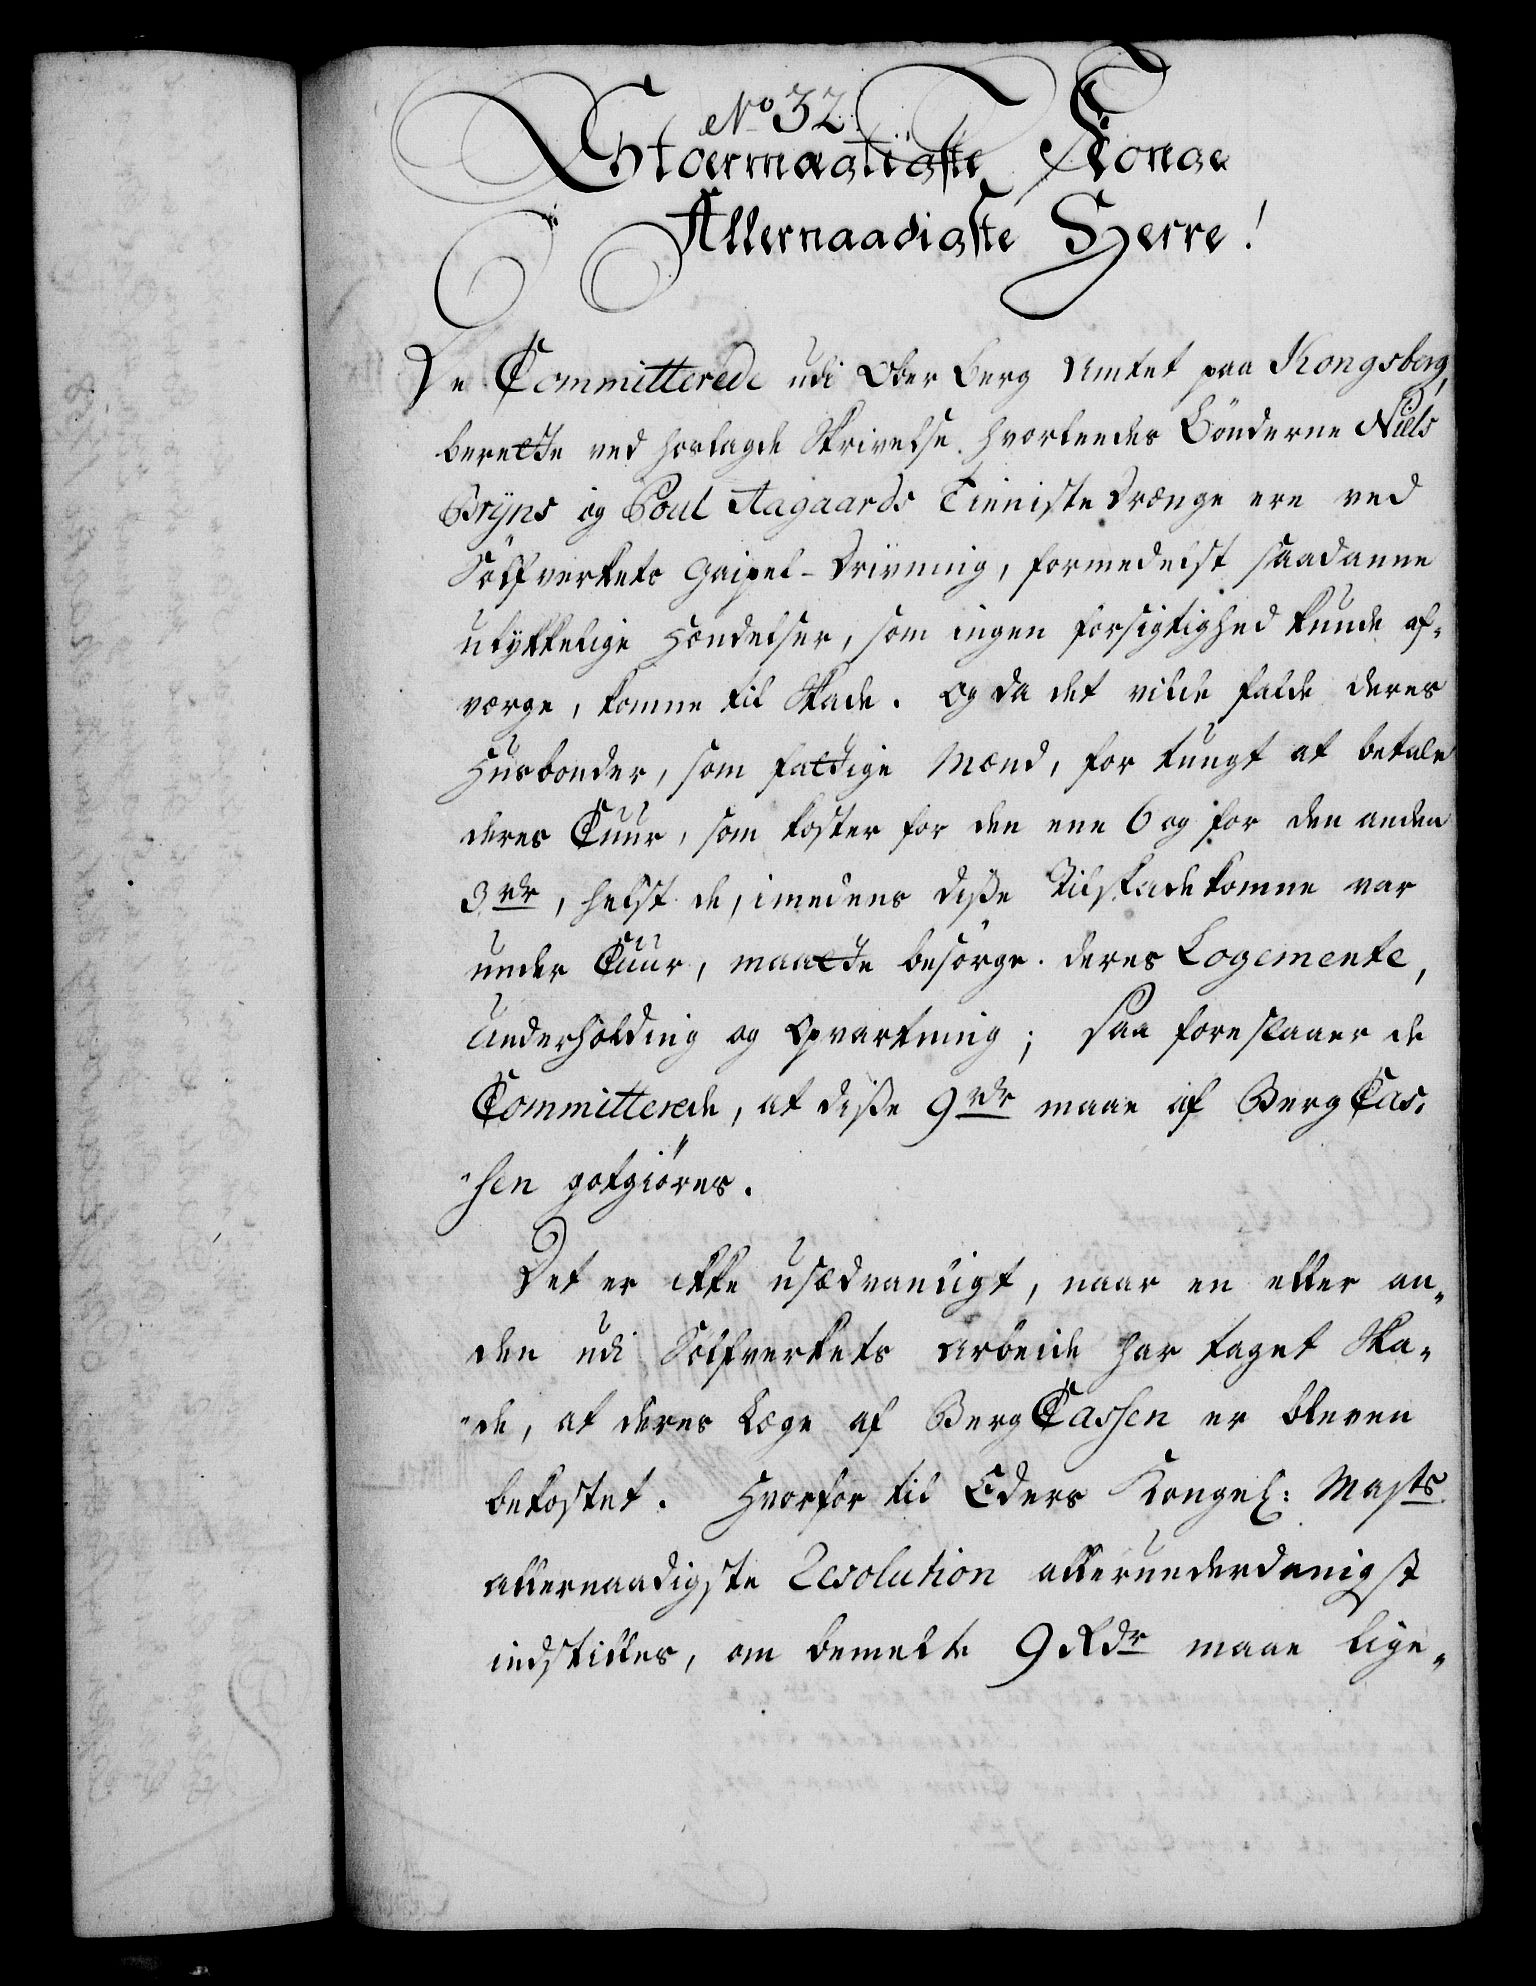 No 32.
Stoermægtigste Konge
Allernaadigste Herre!
De Committerede udi Ober Berg Amtet paa Kongsberg,
berette ved hoslagde Skrivelse hvorledes Bönderne Niels
Bryns og Poul Aagaards Tieniste Drænge ere ved
Sölfverkets Gaipel-Drivning, formedelst saadanne
ulykkelige Hændelser, som ingen forsigtighed kunde af-
værge, komne til Skade. Og da det vilde falde deres
Husbonder, som fattige Mænd, for tungt at betale
deres Cuur, som koster for den ene 6 og for den anden
3 rdr, helst de, imedens disse Tilskadekomne var
under Cuur, maatte besörge deres Logemente,
Underholding og Opvartning; Saa foreslaaer de
Committerede, at disse 9 rdr maae af Berg Cas-
sen godgiöres.
Det er ikke usædvanligt, naar en eller an-
den udi Sölfverkets Arbeide har taget Ska-
de, at deres Læge af Berg Cassen er bleven
bekostet. Hvorfor til Eders Kongel: Majts
allernaadigste Resolution allerunderdanigst
indstilles, om bemelte 9 Rdr maae lige-